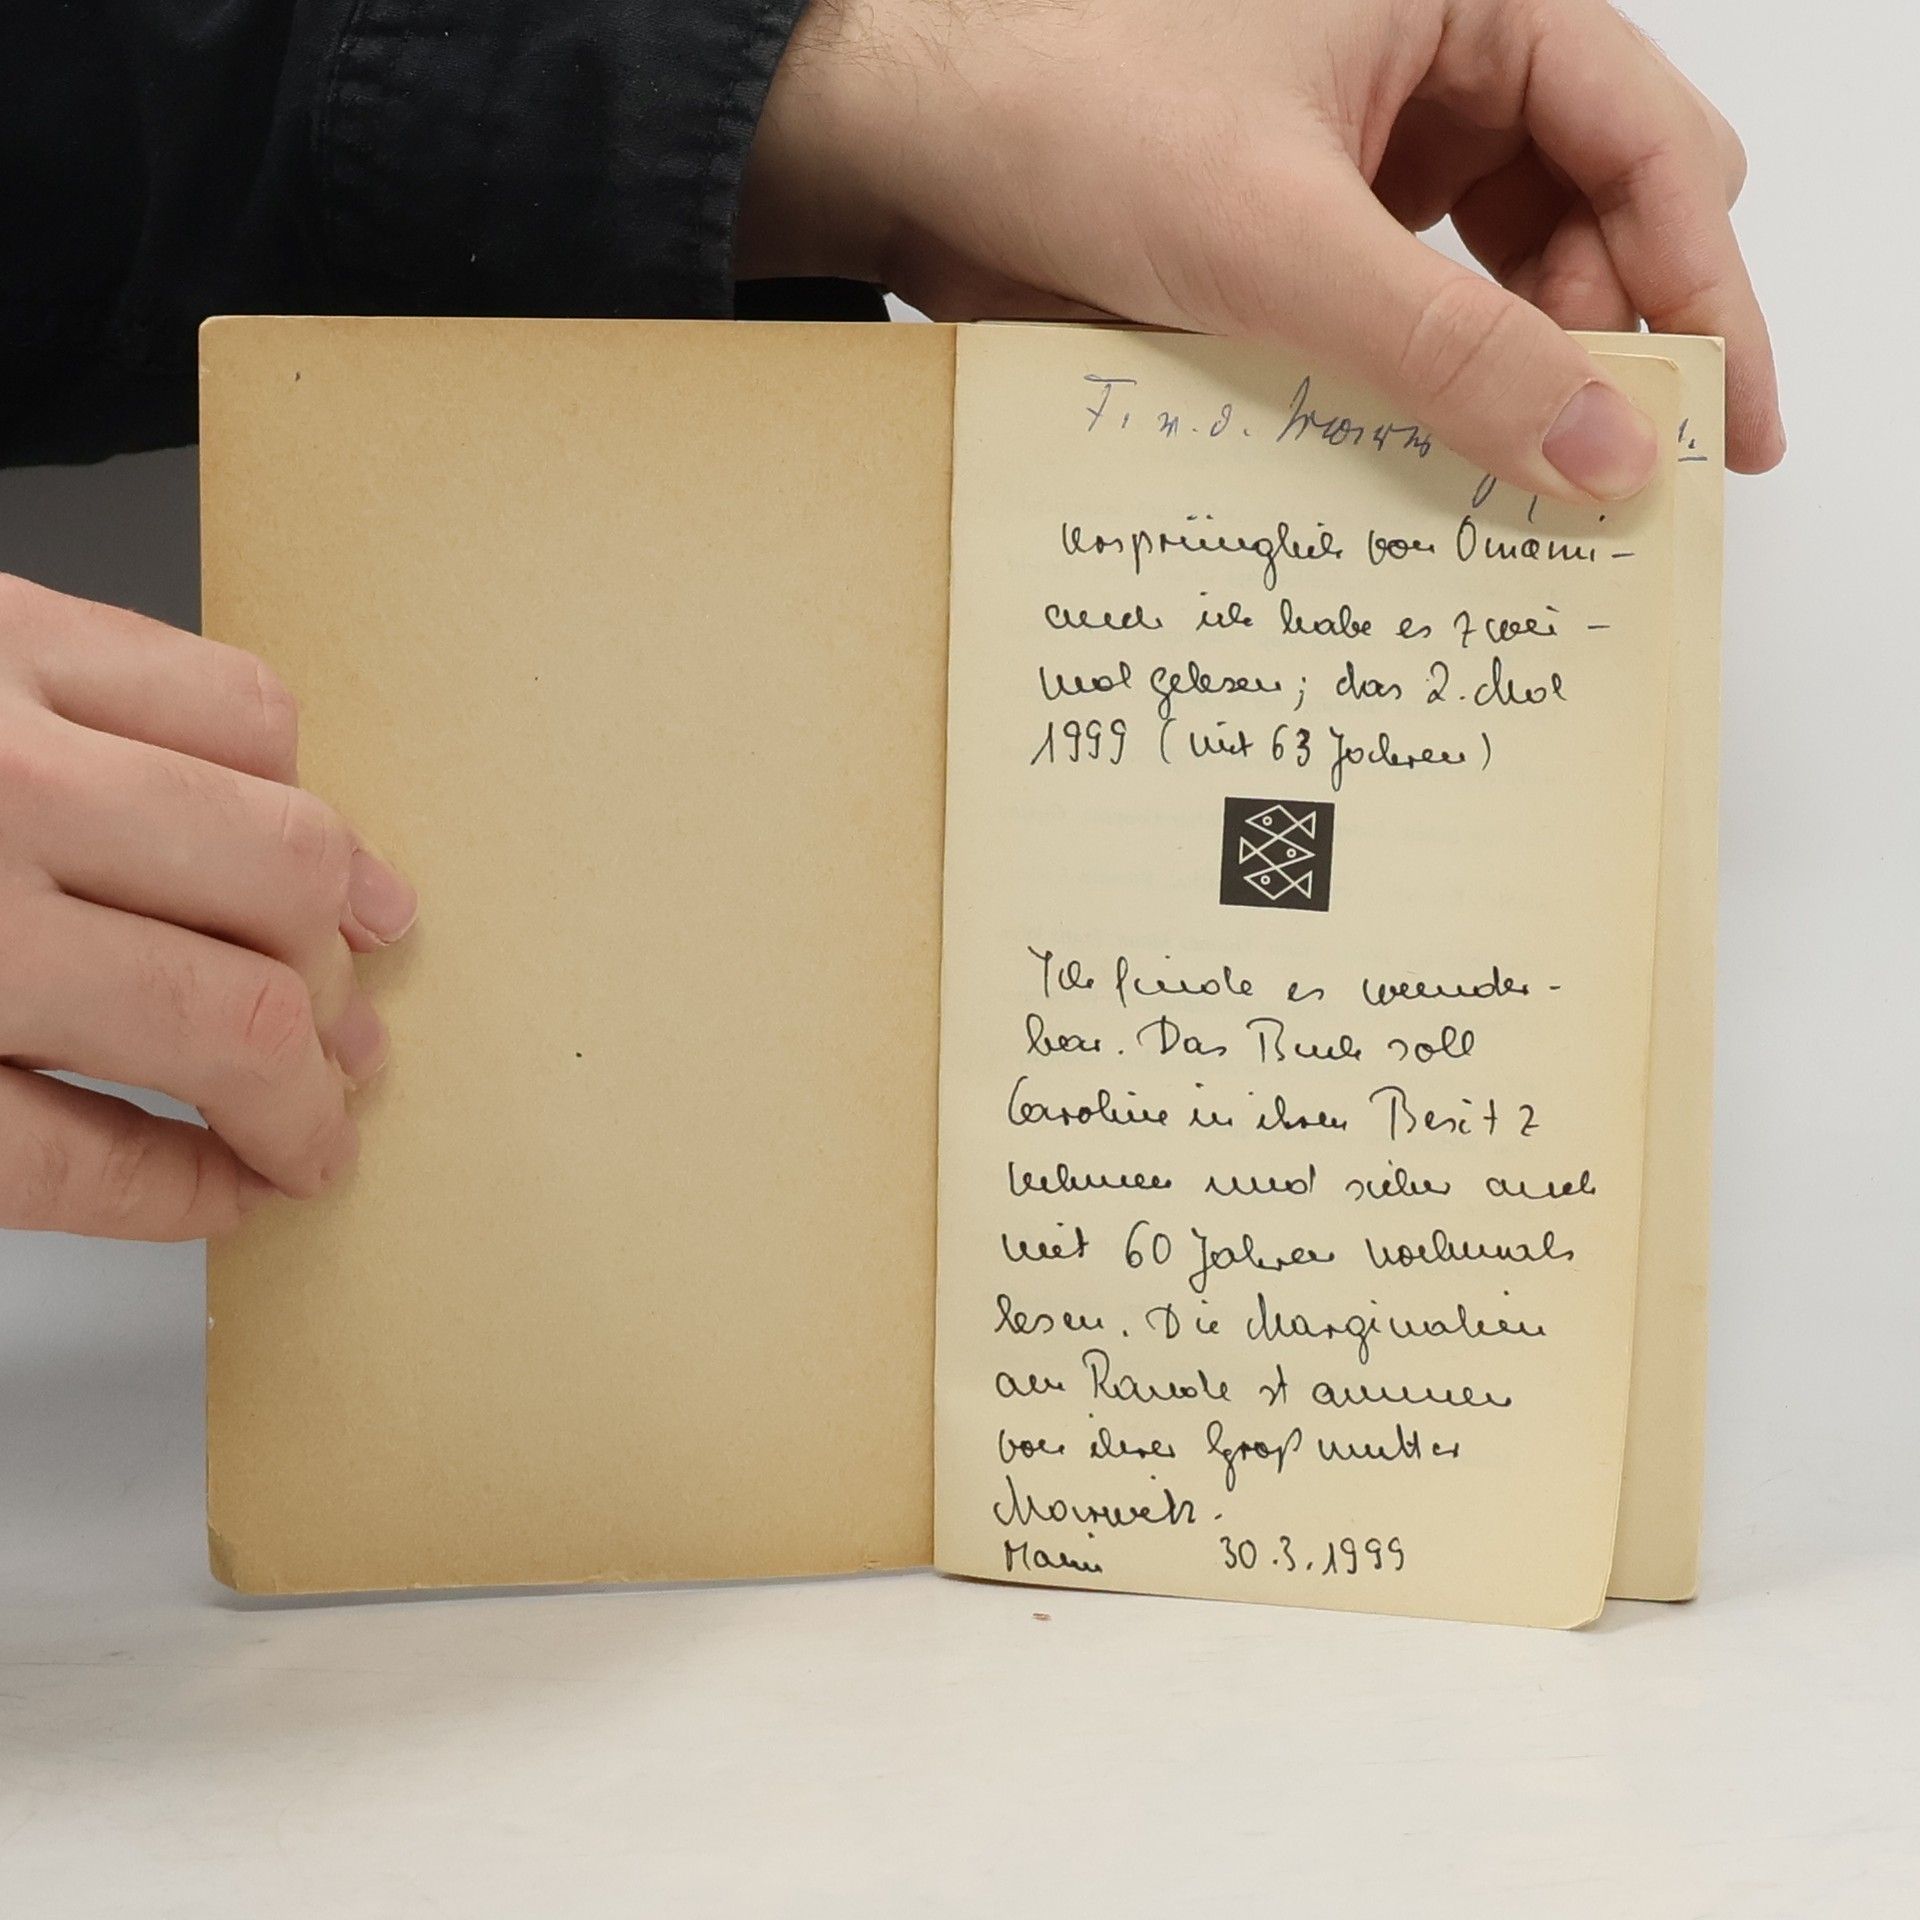 F. v. d.
Ursprünglich von Omami –
auch ich habe es zwei –
mal gelesen; das 2. Mal
1999 (mit 63 Jahren)
Ich finde es wunder -
bar. Das Buch soll
Caroline in ihren Besitz
nehmen und sicher auch
mit 60 Jahren nochmals
lesen. Die Marginalien
am Rande stammen
von ihrer Großmutter
Marwitz.
Mami 30.3.1999